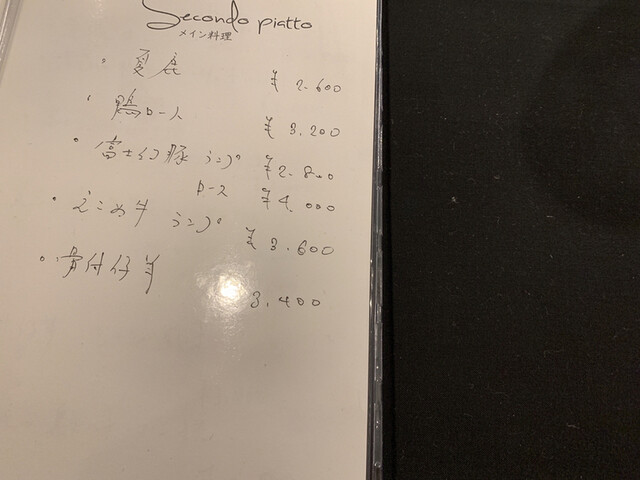 Secondo piatto
メイン料理
夏鹿 ¥2.600
鴨ロース ¥3,200
富士幻豚 ランプ ¥2.800
ロース ¥4,000
えこめ牛 ランプ ¥3.600
骨付仔羊 3,400